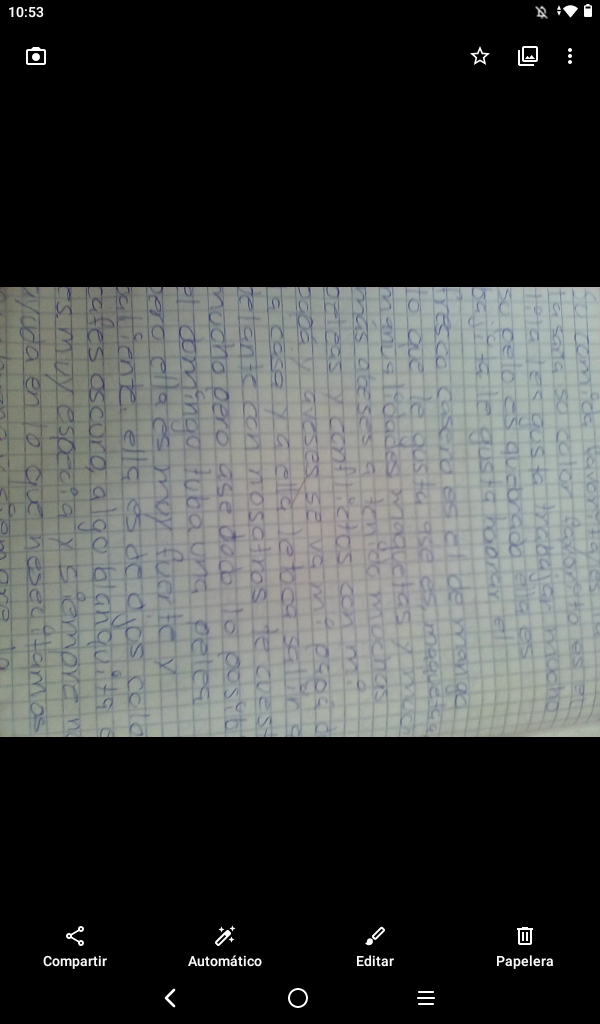 10:53
su comida favorita es la
lasaña so color favorito es el
lila les gusta trabajar mucho
so pelo es quebrado ella es
bajita le gusta haorar el
fresco casero es el de mango
lo que le gusta ase es maquetas
manualidades maquetas y
mas aveses a tenido muchas
peleas y conflictos con mi
papá y aveses se va mi papá d
la casa y a ella letoca salir a
delante con nosotros le cuest
mucho pero ase todo lo posibl
el domingo tuba una pelea
pero ella es muy fuerte y
baliente. ella es de ojos colo
cafes oscura algo blanquita
es muy especia y siempre n
ayuda en lo que nesecitamos
siempre
Compartir
Automático
Editar
Papelera